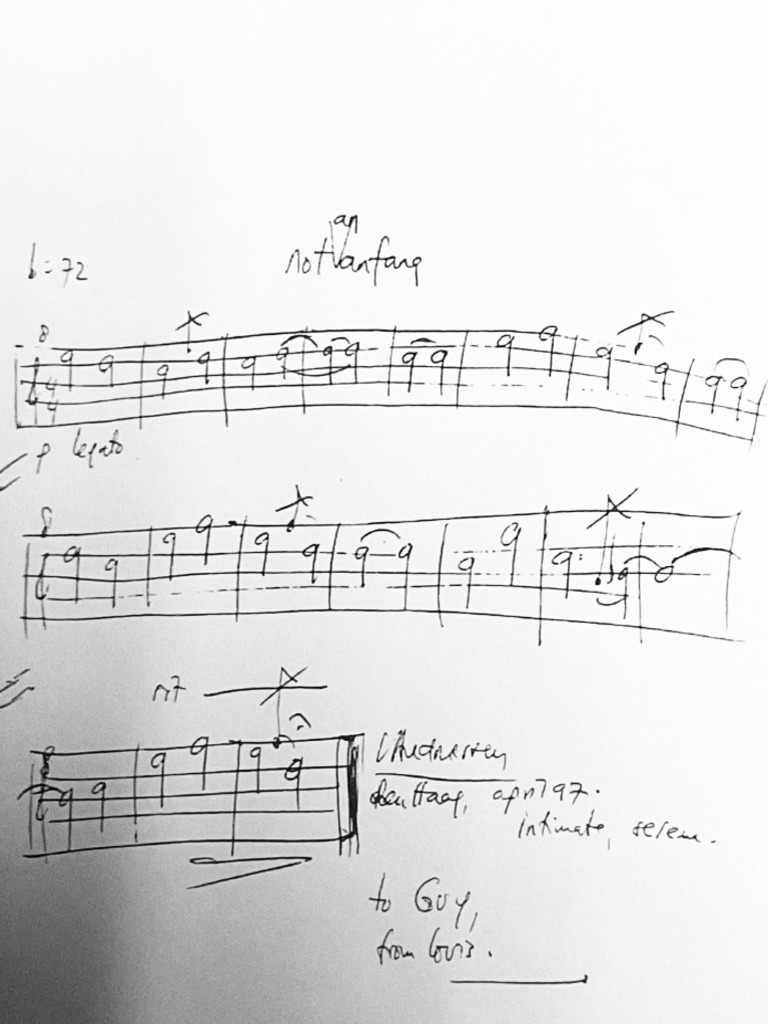 an
not anfang
♩=72
8
4
4
p legato
8
8
L Andriessen
den Haag, april 97.
intimate, serene.
to Guy,
from Louis.